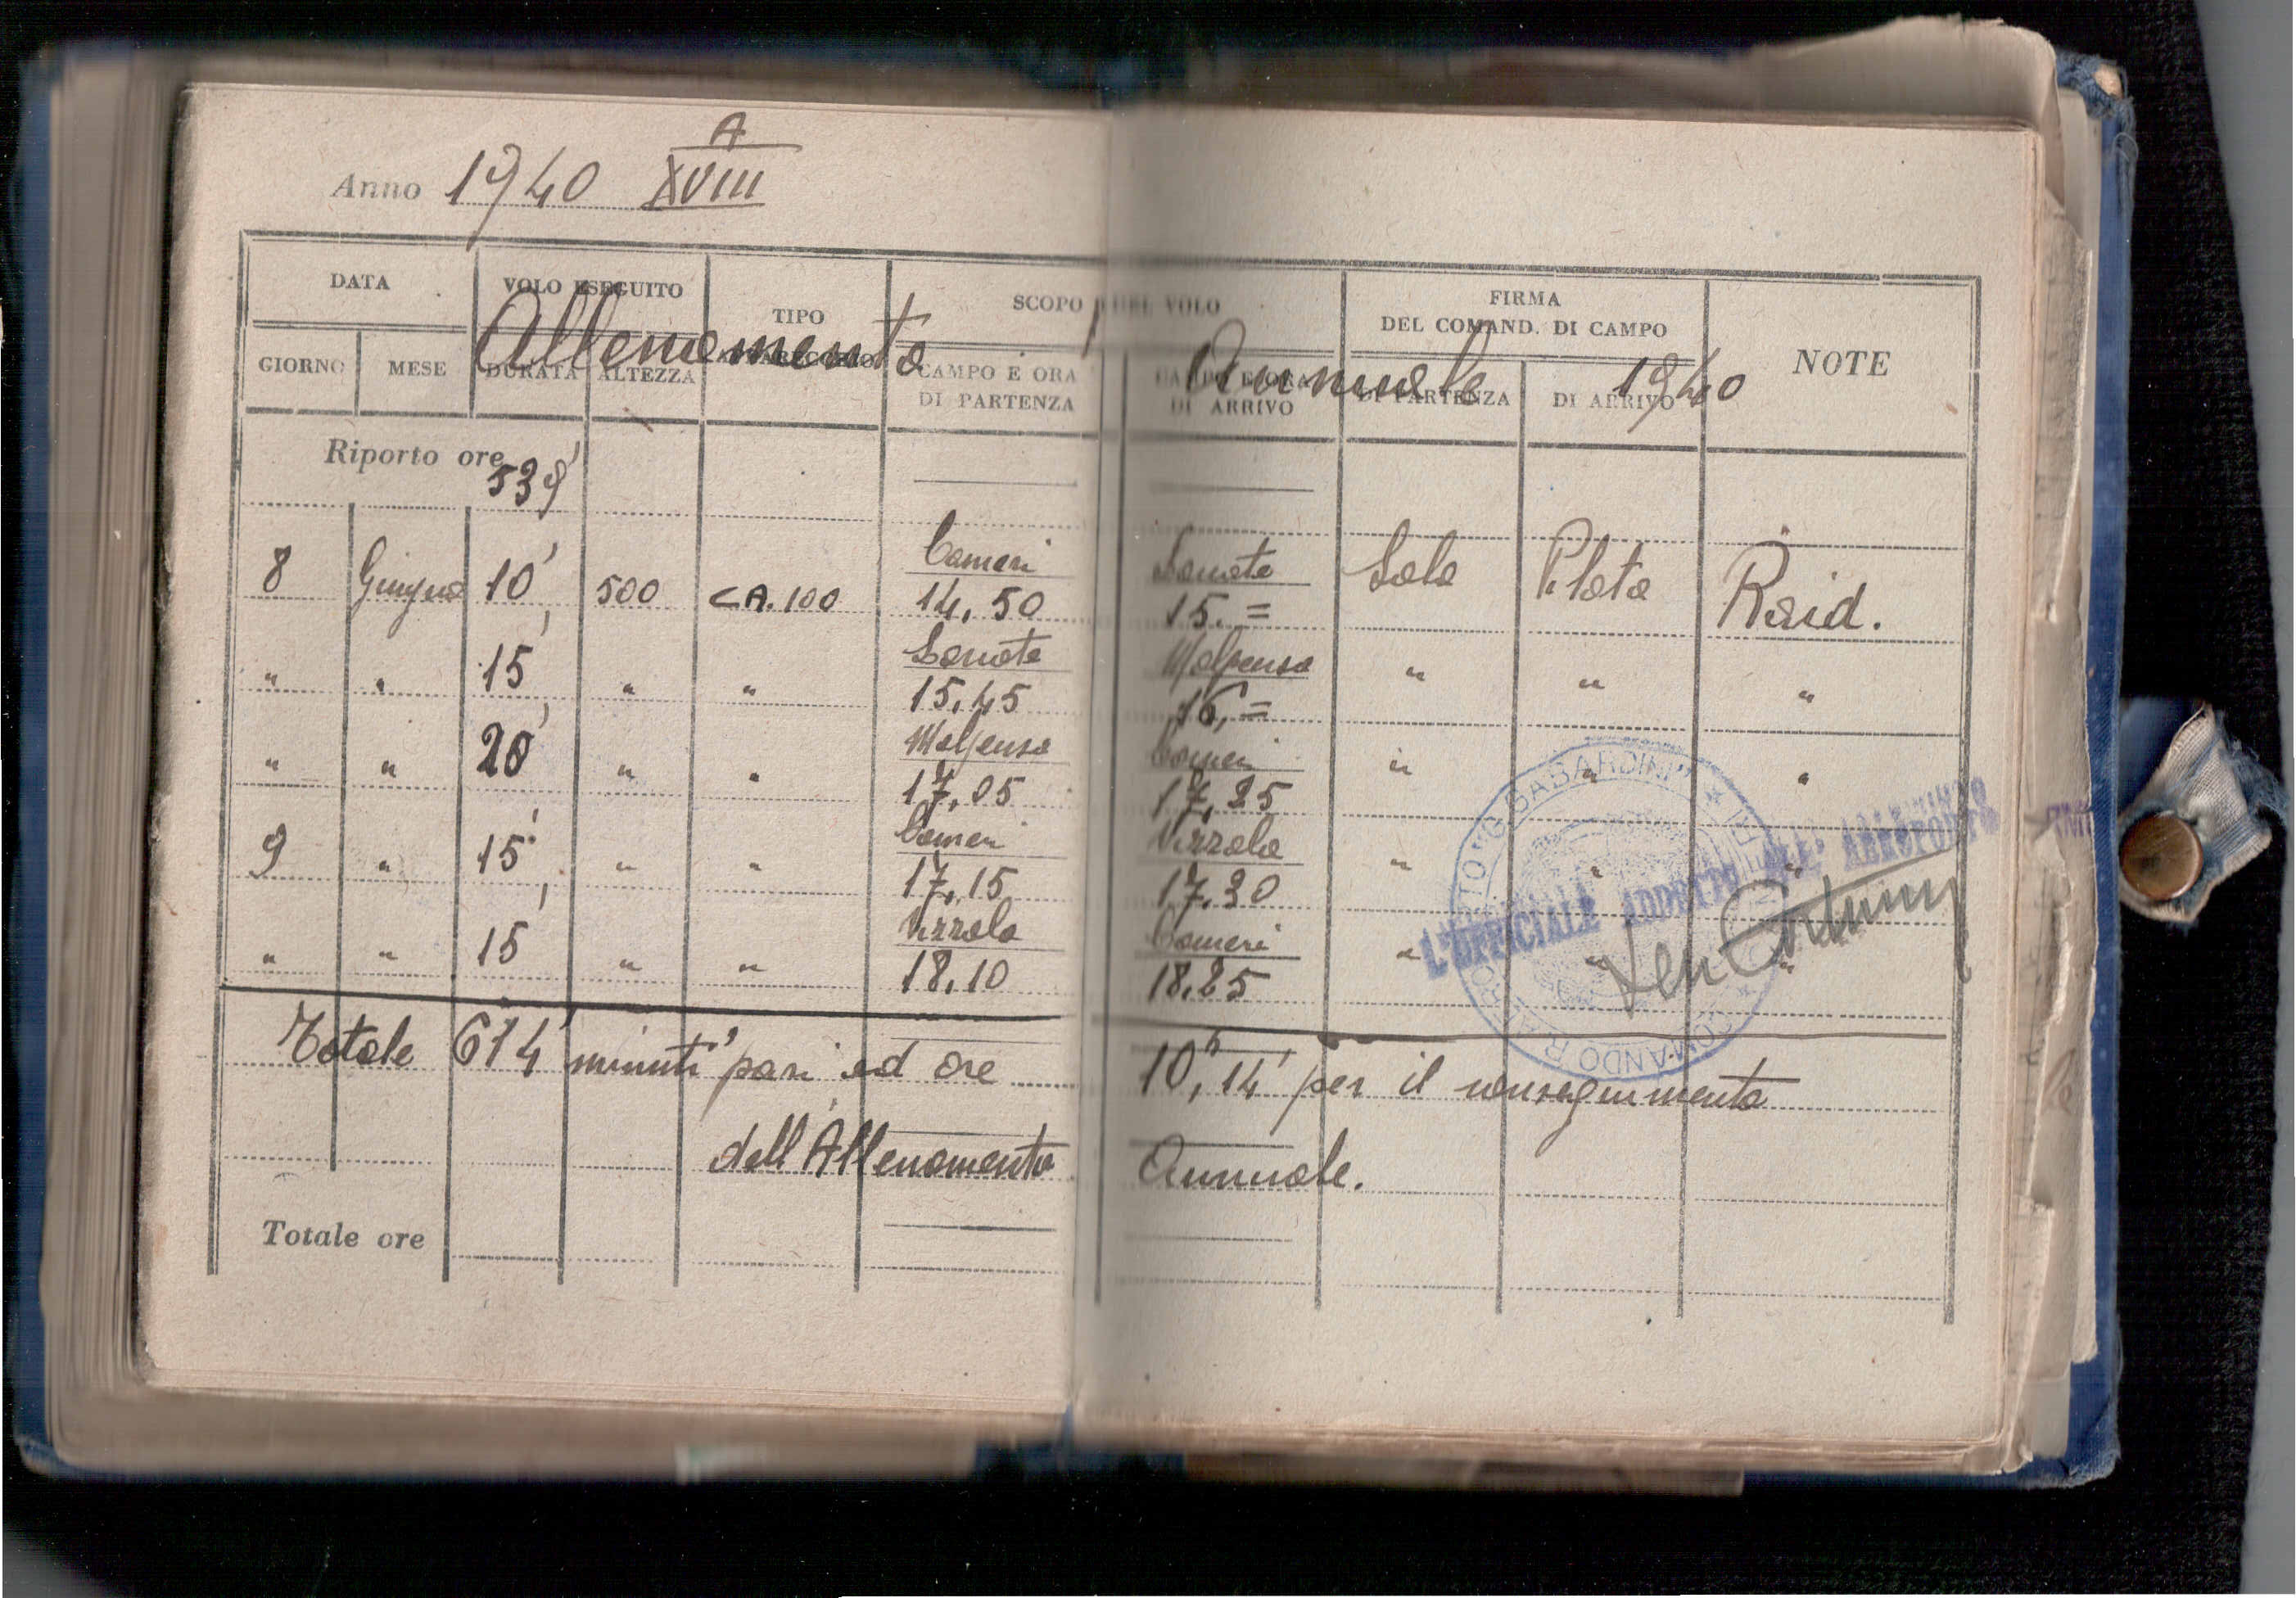 A
Anno 1940 XVIII
DATA VOLO ESEGUITO TIPO SCOPO DEL VOLO FIRMA DEL COMAND. DI CAMPO NOTE
Allenamento Annuale 1940
GIORNO MESE DURATA ALTEZZA APPARECCHIO CAMPO E ORA DI PARTENZA CAMPO E ORA DI ARRIVO DI PARTENZA DI ARRIVO
Riporto ore 539'
Cameri Lonate Solo Pilota Raid.
8 Giugno 10' 500 CA.100 14,50 15.=
Lonate Malpensa
" " 15' " " 15,45 16,= " " "
Malpensa Cameri
" " 20' " " 17,05 17,25 " " "
Cameri Vizzola
9 " 15' " " 17,15 17,30 " " "
Vizzola Cameri
" " 15' " " 18,10 18,25 " " "
"G. GABARDINI" COMANDO
L'UFFICIALE ADDETTO ALL' AEROPORTO
Totale 614' minuti pari ad ore 10h, 14' per il conseguimento
dell'Allenamento Annuale.
Totale ore